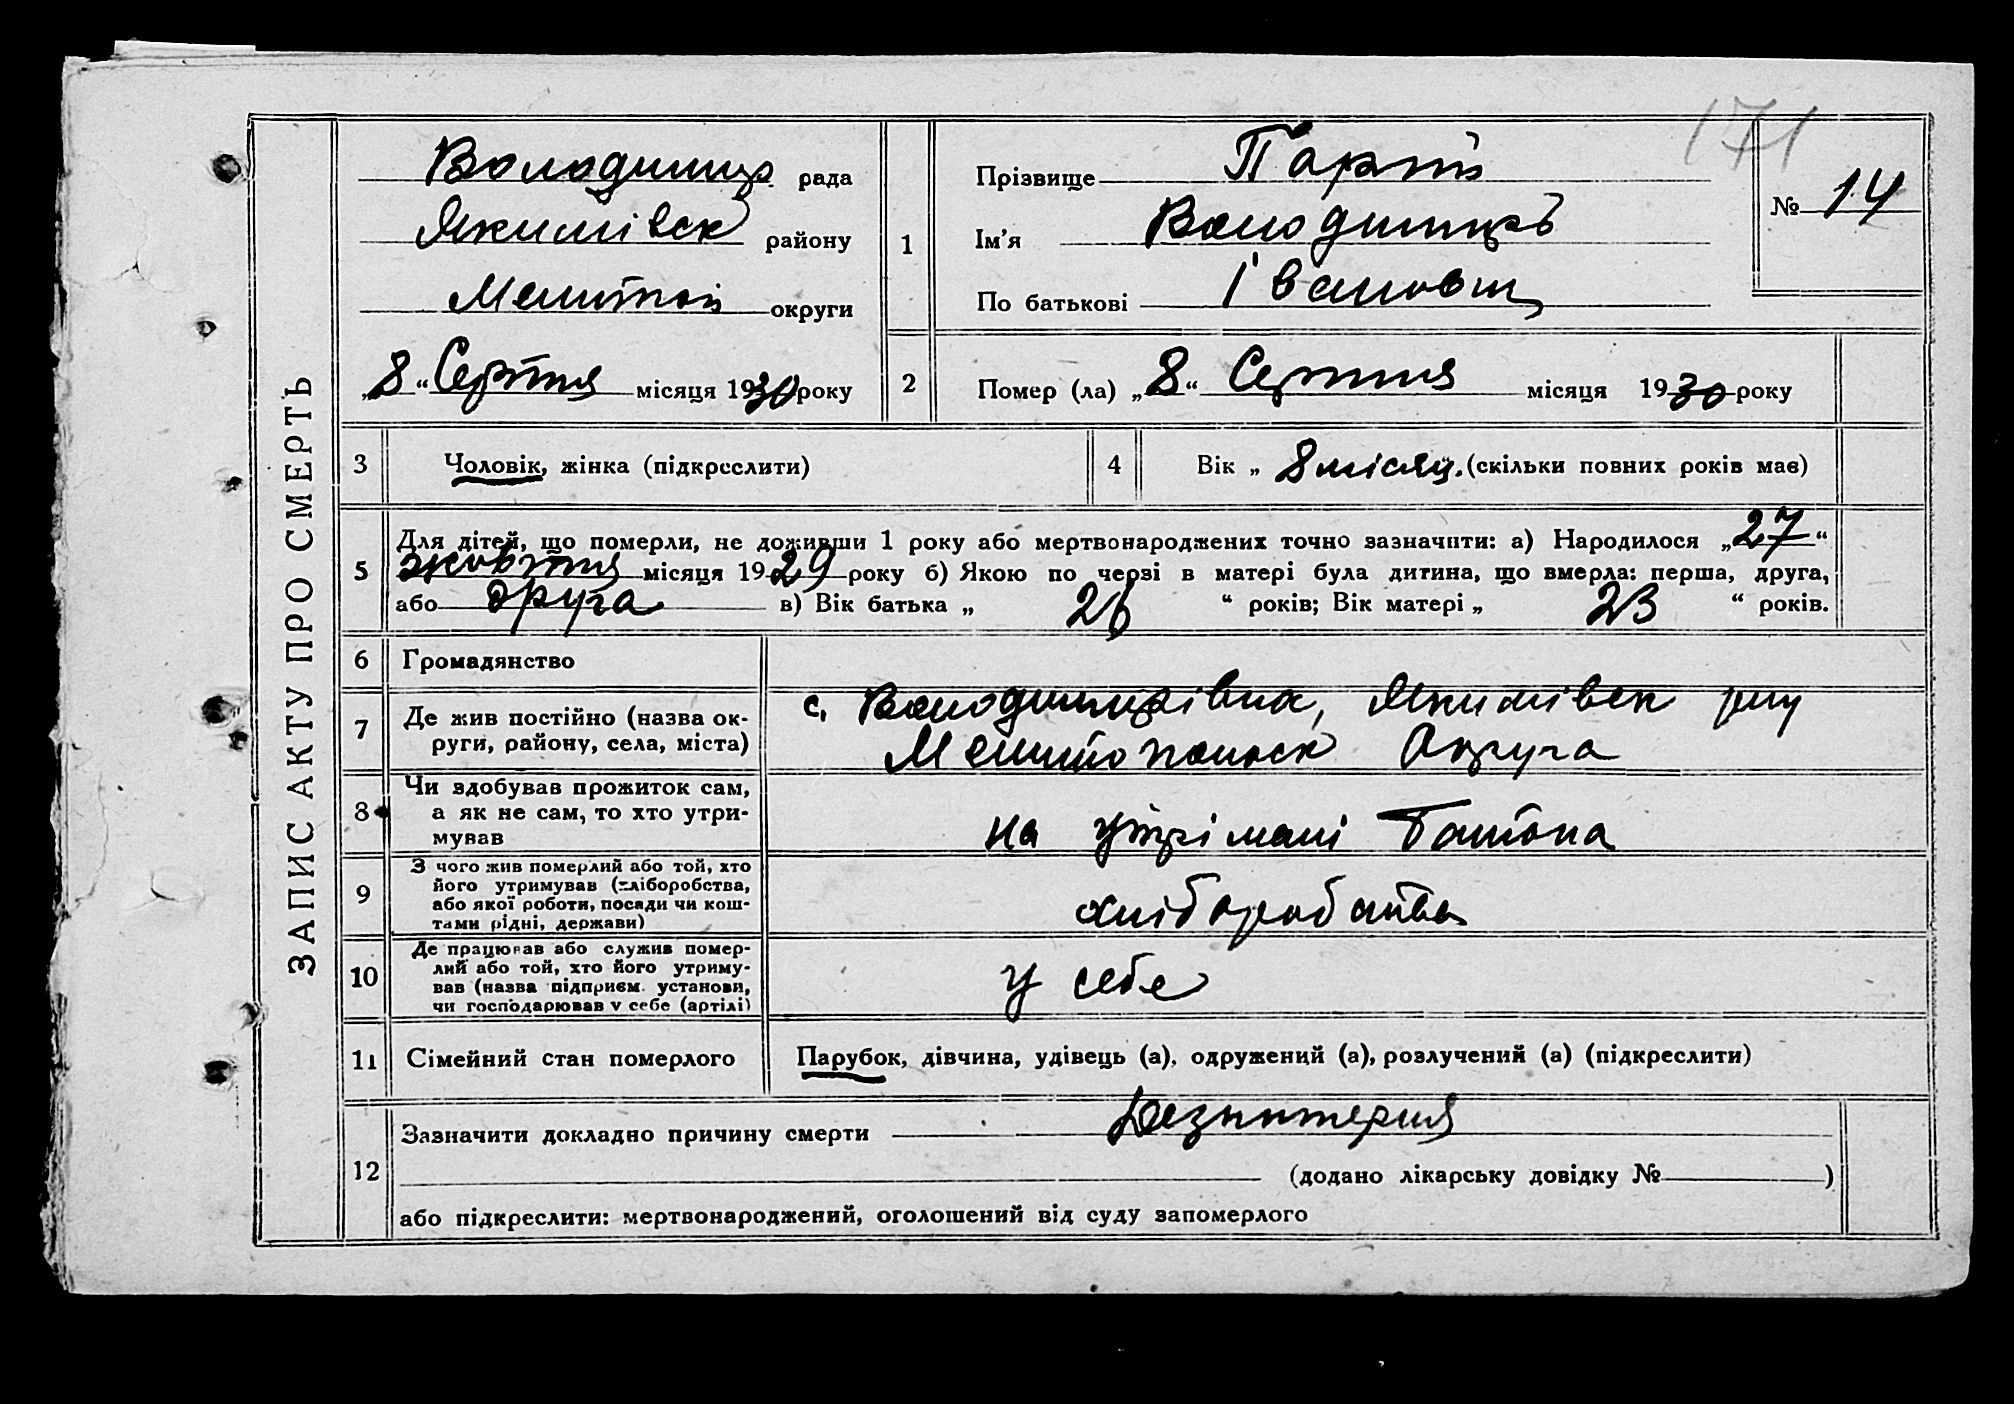 171
ЗАПИС АКТУ ПРО СМЕРТЬ
Володимир. рада
Якимівськ району
Мелітоп округи
„8“ Серпня місяця 1930 року
1
Прізвище
Ім’я Володимиръ
По батькові Івановищ
№ 14
2
Помер (ла) „8“ Серпня місяця 1930 року
3
Чоловік, жінка (підкреслити)
4
Вік „ 8 місяц. (скільки повних років має)
5
Для дітей, що померли, не доживши 1 року або мертвонароджених точно зазначити: а) Народилося „27“
жовтня місяця 1929 року б) Якою по черзі в матері була дитина, що вмерла: перша, друга,
або друга в) Вік батька „ 26 “ років; Вік матері „ 23 “ років.
6
Громадянство
7
Де жив постійно (назва ок-
руги, району, села, міста)
с. Володимирівка, Якимівськ р-ну
Мелитопольск Округа
8
Чи здобував прожиток сам,
а як не сам, то хто утри-
мував
на утрімані Батька
9
З чого жив померлий або той, хто
його утримував (хліборобства,
або якої роботи, посади чи кош-
тами рідні, держави)
хлібо­робства
10
Де працював або служив помер-
лий або той, хто його утриму-
вав (назва підприєм. установи,
чи господарював у себе (артілі)
у себе
11
Сімейний стан померлого
Парубок, дівчина, удівець (а), одружений (а), розлучений (а) (підкреслити)
12
Зазначити докладно причину смерти Дезинтерия
(додано лікарську довідку № )
або підкреслити: мертвонароджений, оголошений від суду запомерлого